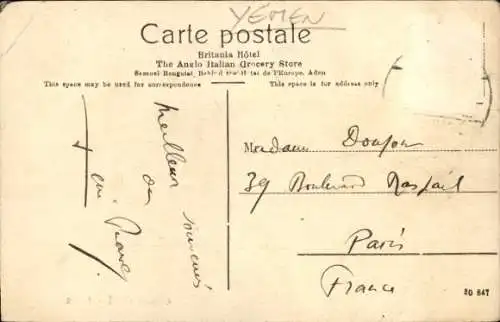 YEMEN
Carte postale
Britania Hôtel
The Anglo Italian Grocery Store
Samuel Benguiat, Behind the Hotel de l'Europe, Aden
This space may be used for correspondence
This space is for address only
Meilleur
souvenir
Madame
39 Boulevard Raspail
Paris
France
20 847